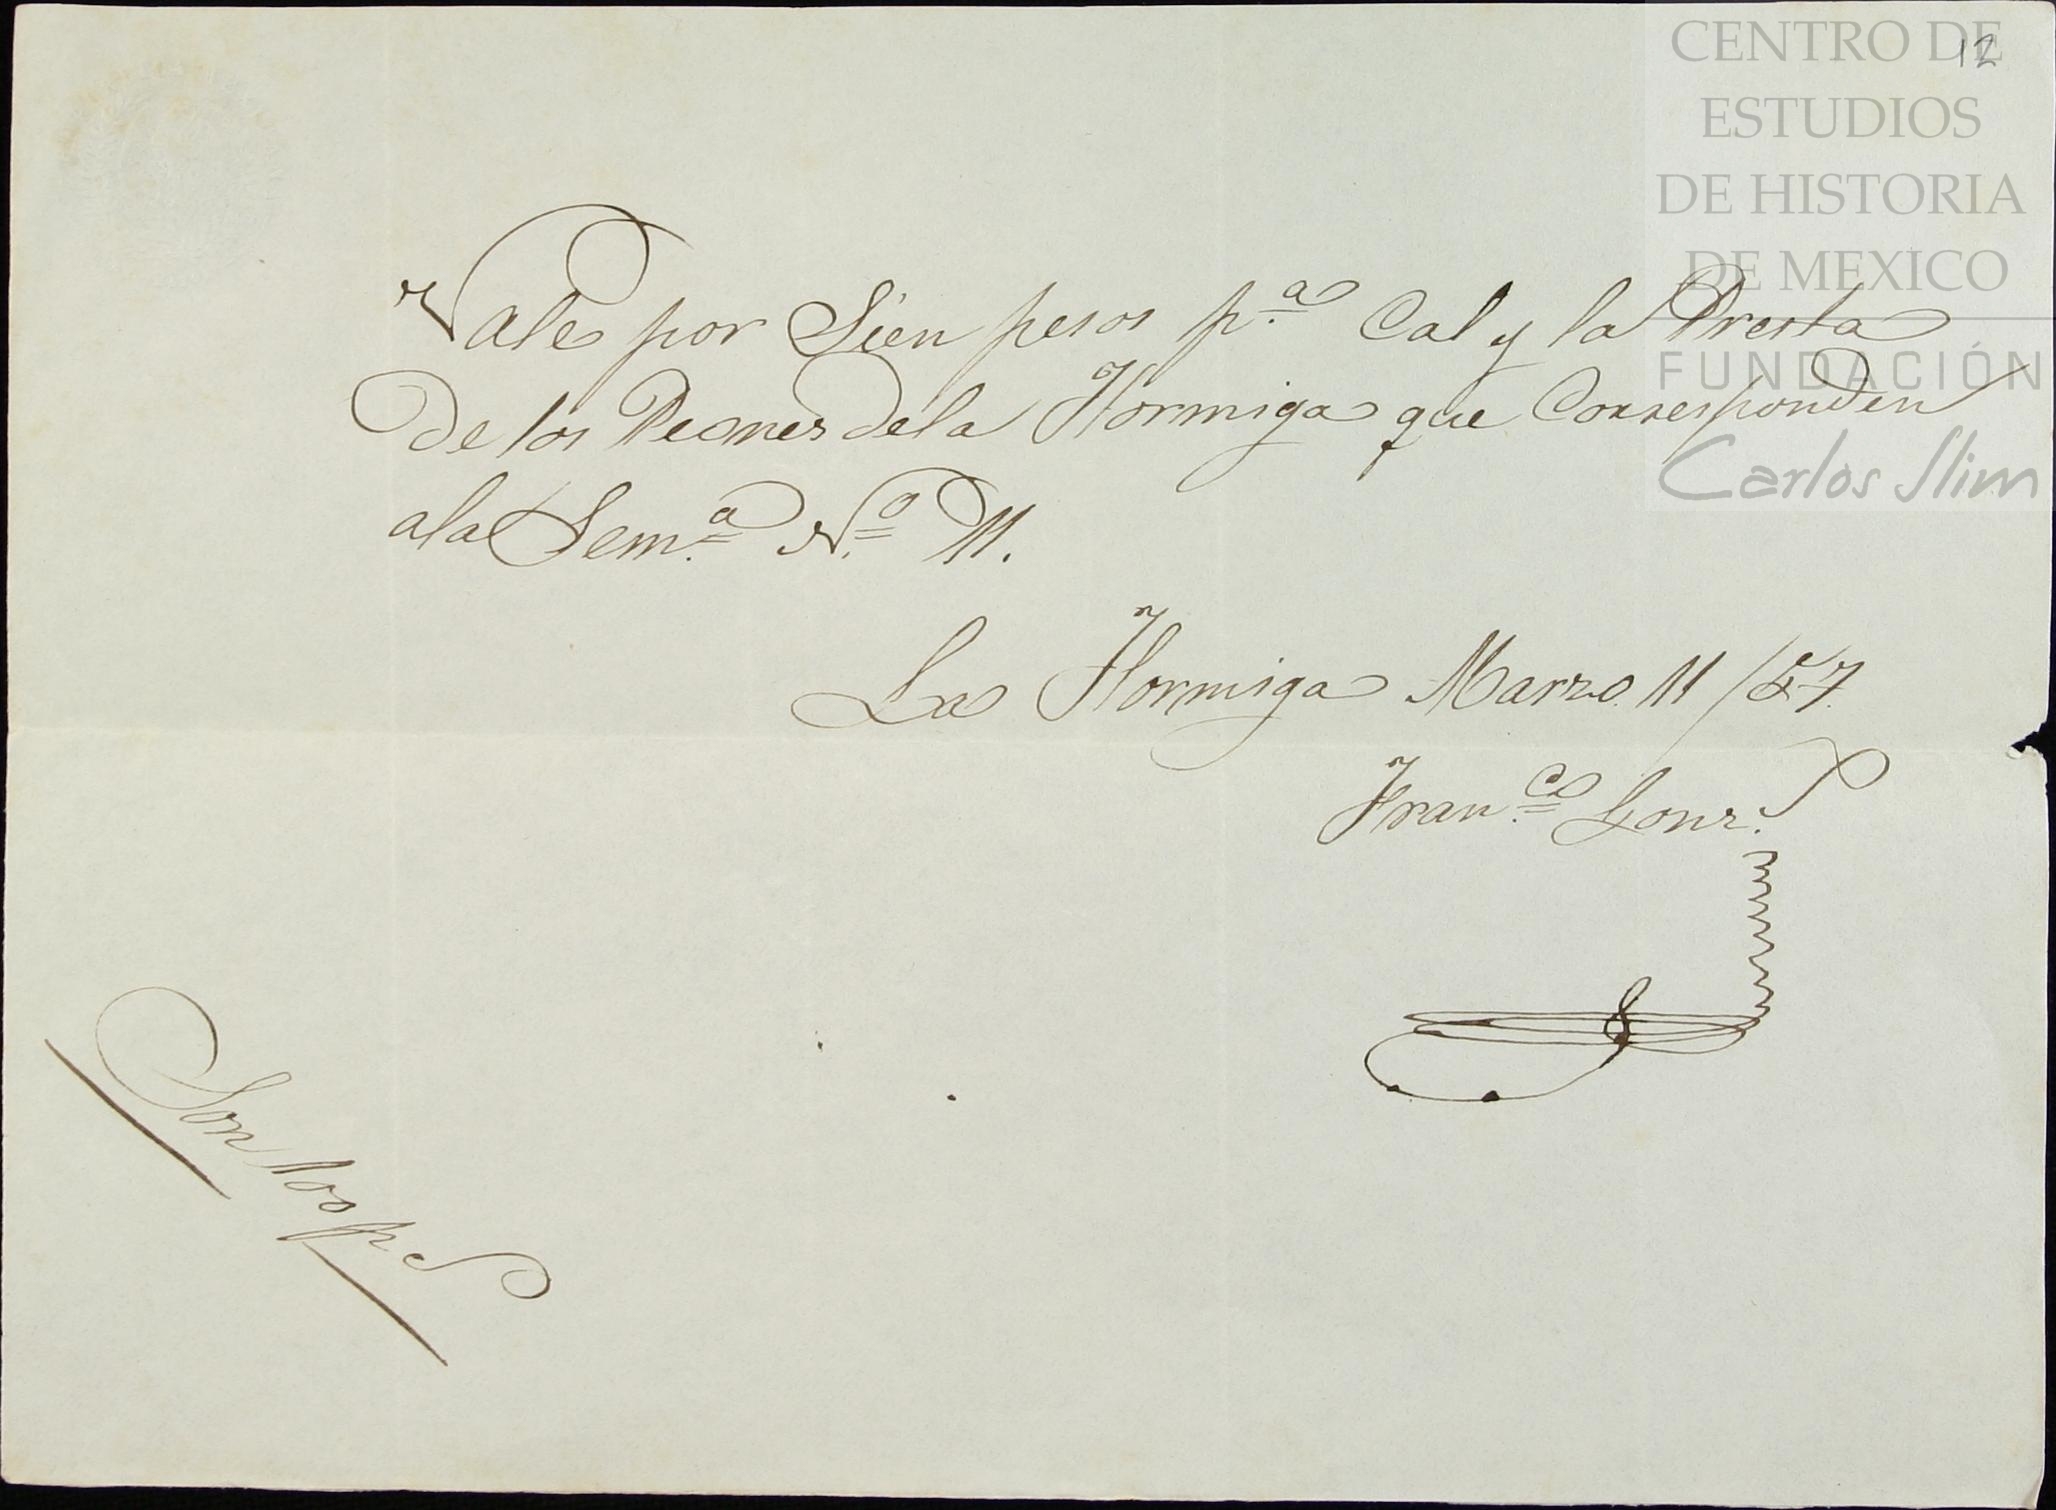 12
CENTRO DE
ESTUDIOS
DE HISTORIA
DE MEXICO
FUNDACIÓN
Carlos Slim
Vale por Sien pesos p.ª Cal y la Presta
De los Peones dela Hormiga que Corresponden
ala Sem.ª N.º 11.
La Hormiga Marzo 11
Fran.co Gonz.
Son 100 ps